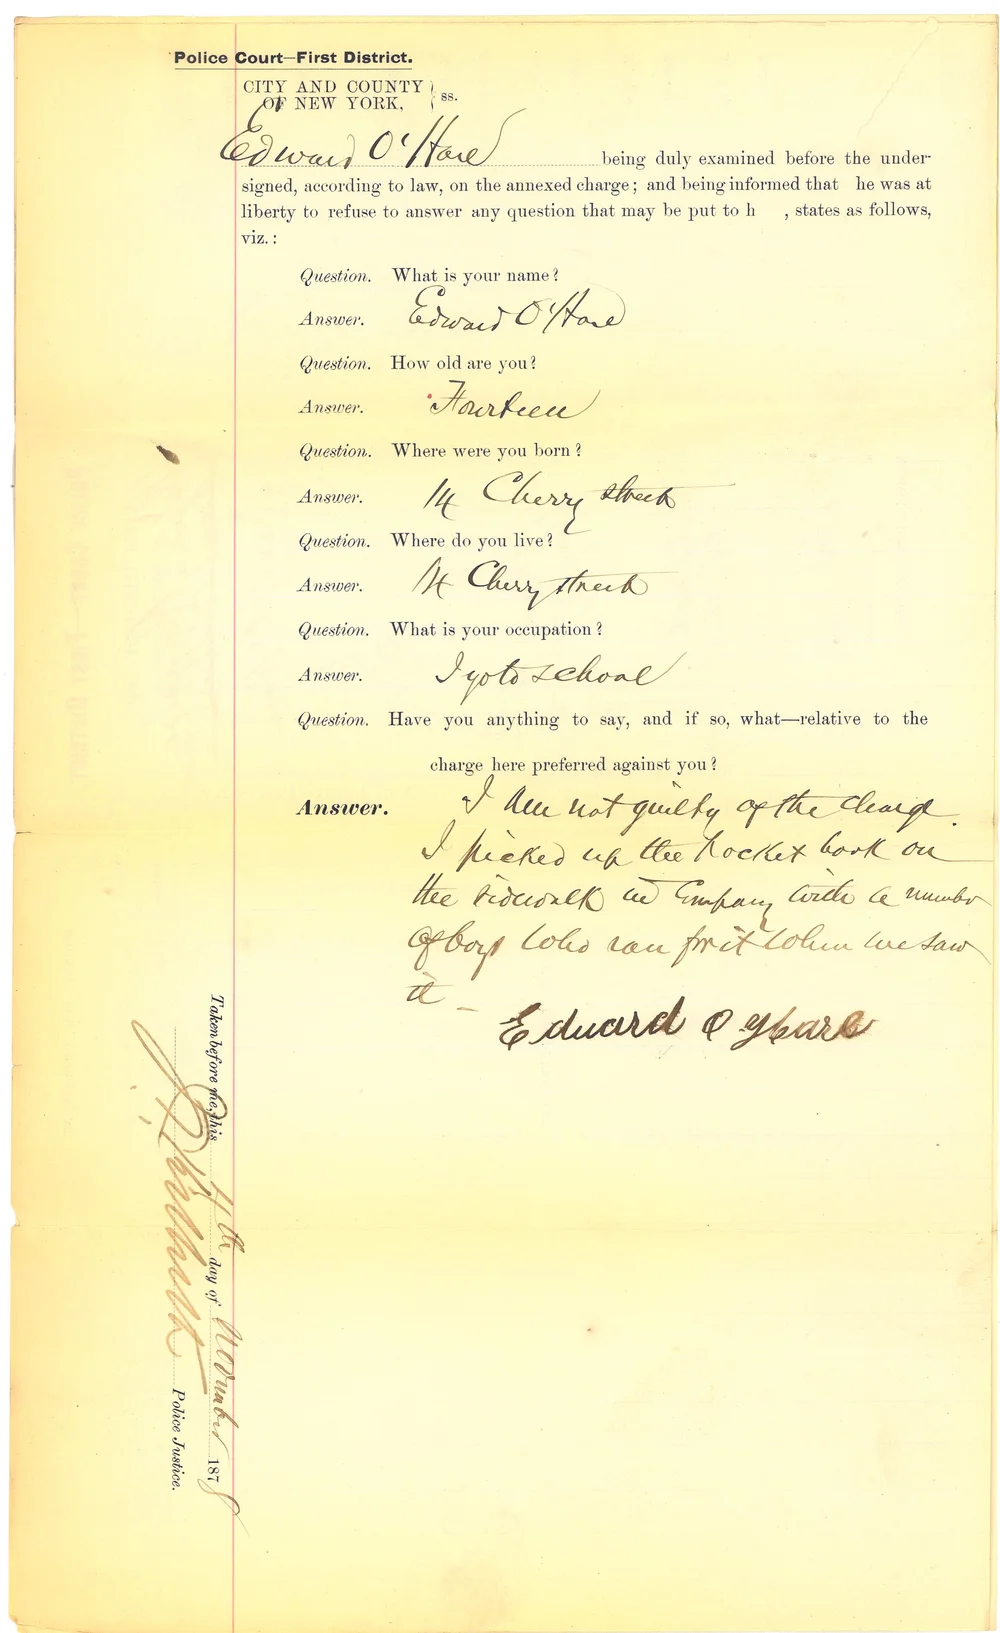 Police Court—First District.
CITY AND COUNTY
OF NEW YORK, } ss.
Edward O'Hare being duly examined before the under-
signed, according to law, on the annexed charge; and being informed that he was at
liberty to refuse to answer any question that may be put to h , states as follows,
viz.:
Question. What is your name?
Answer. Edward O'Hare
Question. How old are you?
Answer. Fourteen
Question. Where were you born?
Answer. 14 Cherry street
Question. Where do you live?
Answer. 14 Cherry street
Question. What is your occupation?
Answer. I go to school
Question. Have you anything to say, and if so, what—relative to the
charge here preferred against you?
Answer. I am not guilty of the charge.
I picked up the Pocket book on
the sidewalk in Company with a number
of boys who ran for it when we saw
it —
Edward O Hare
Taken before me, this
4th day of November 1878
Police Justice.